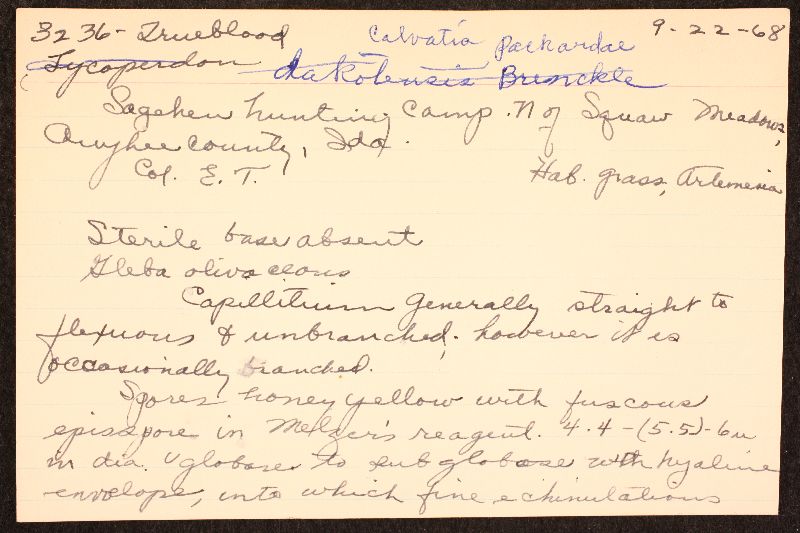 3236- Trueblood Calvatia Packardae 9-22-68
Lycoperdon dakotensis Brenckle
Sagehen hunting camp. N of Squaw Meadows,
Owyhee County, Ida.
Col. E. T. Hab. grass, Artemesia
Sterile base absent
Gleba olivaceous
Capillitium generally straight to
flexuous & unbranched; however it is
occasionally branched.
Spores honey yellow with fuscous
epispore in Melzer's reagent. 4.4-(5.5)-6u
in dia. globose to subglobose with hyaline
envelope, into which fine echinulations